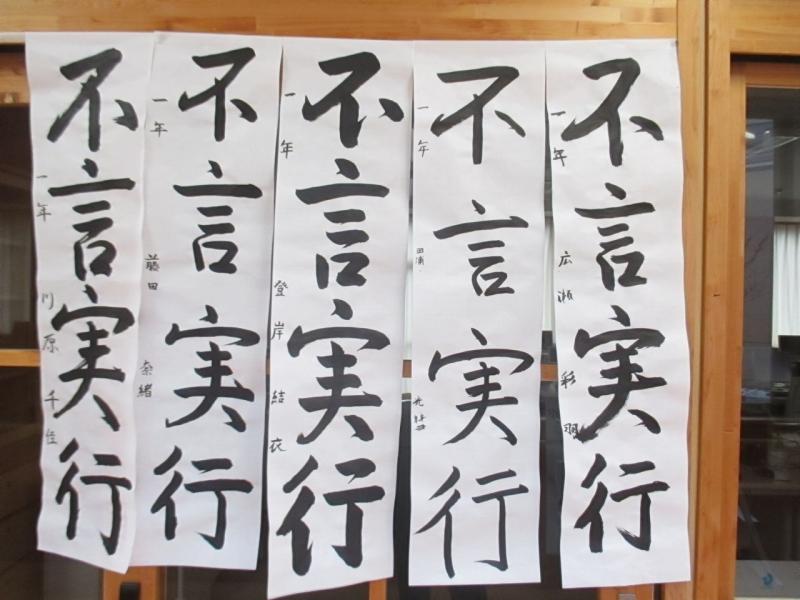 不言実行
一年 広瀬 彩羽
不言実行
一年 田浦
不言実行
一年 登岸 結衣
不言実行
一年 藤田 奈緒
不言実行
一年 川原 千佳